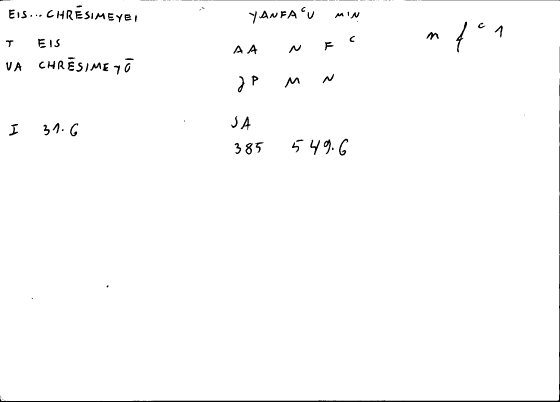 EIS...CHRĒSIMEYEI YANFAᶜU MIN
T EIS AA N F ᶜ n f ᶜ 1
VA CHRĒSIMEYŌ JP M N
I 31.6 JA
385 549.6